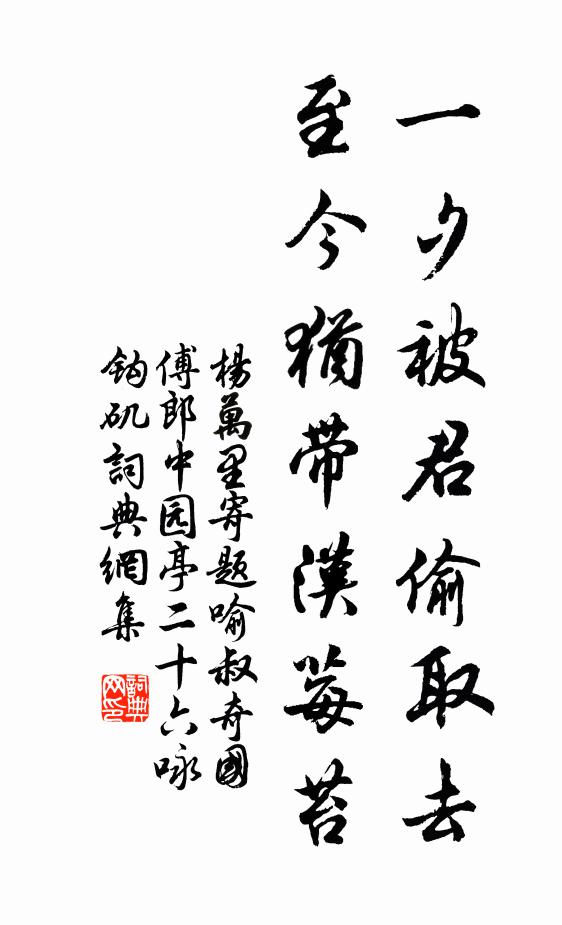 一夕被君偷取去
至今猶帶漢莓苔
楊萬里寄題喻叔奇國
傅郎中园亭二十六咏
鈎矶詞典網集
詞典網印